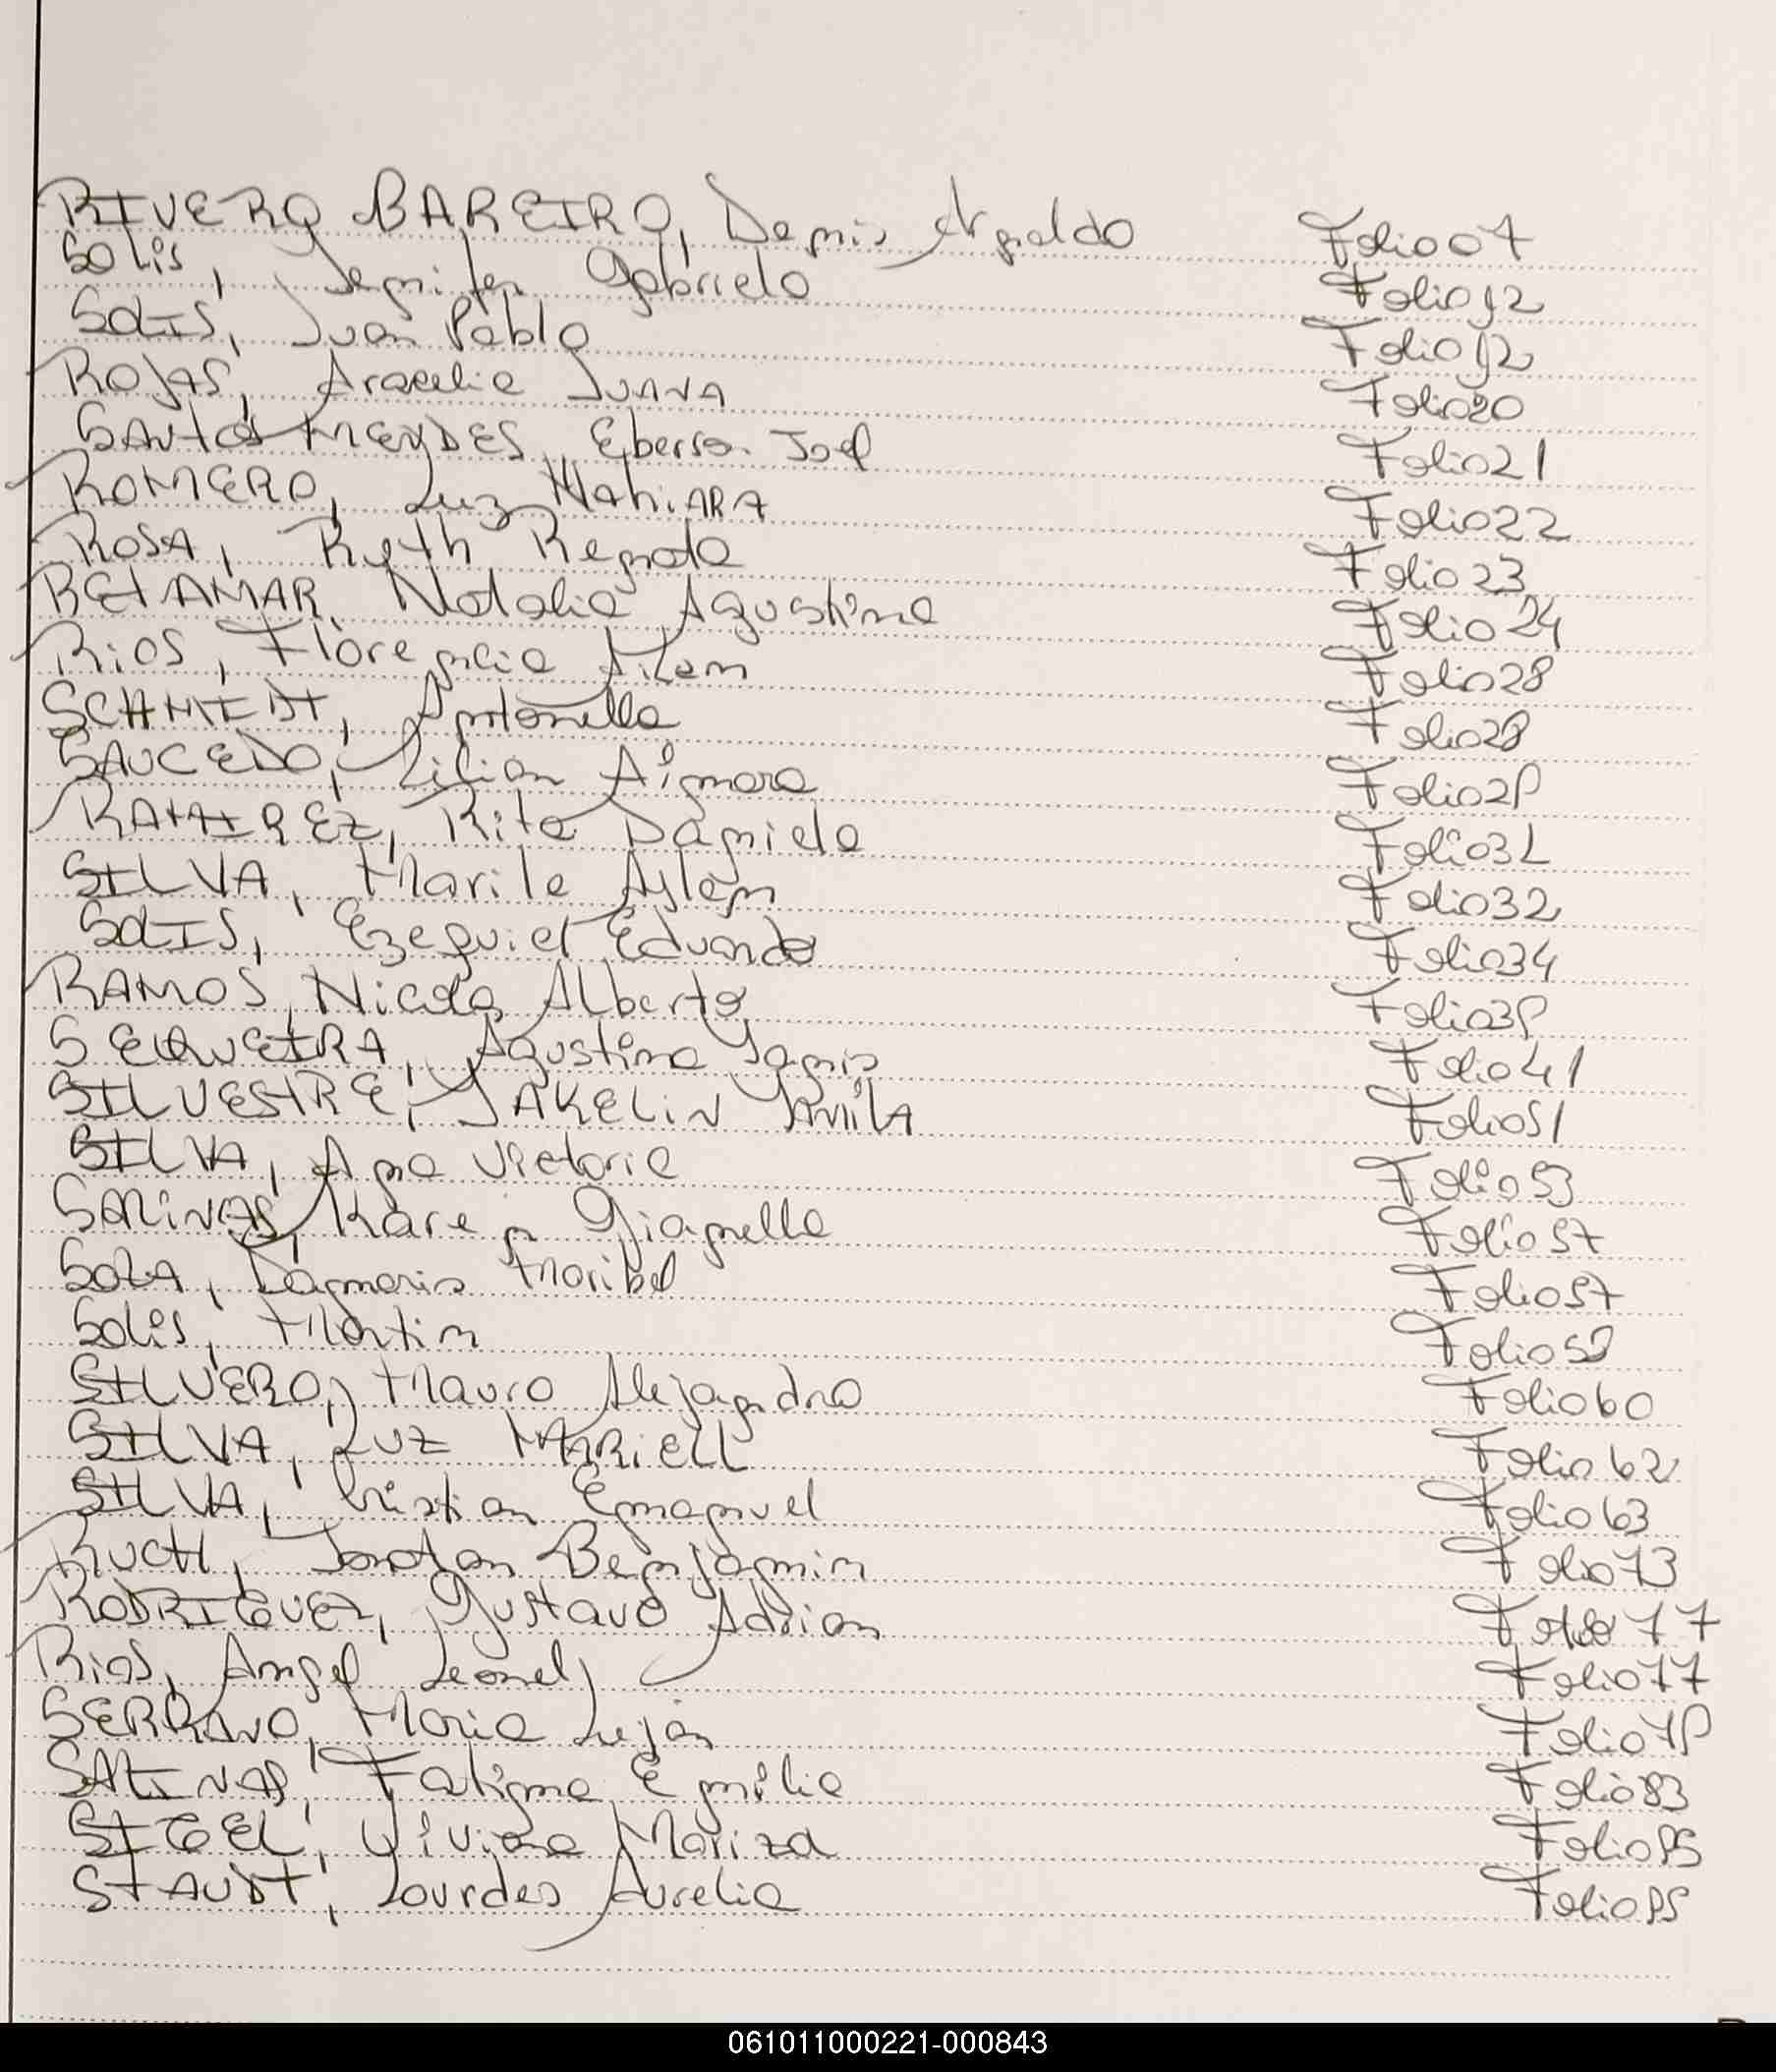 RIVERO BAREIRO, Denis Arnaldo Folio 07
Solis, Jennifer Gabriela Folio 12
SOLIS, Juan Pablo Folio 12
ROJAS, Aracelie JUANA Folio 20
SANTOS MENDES Eberson Joel Folio 21
ROMERO, Luz NahiARA Folio 22
ROSA, Ruth Renata Folio 23
RETAMAR Natalia Agustina Folio 24
RIOS, Florencia Ailen Folio 28
SCHMIDT, Antonella Folio 28
SAUCEDO, Lilian Aimara Folio 29
RAMIREZ, Rita Daniela Folio 31
SILVA, Marile Aylen Folio 32
SOLIS, Ezequiel Eduardo Folio 34
RAMOS, Nicolas Alberto Folio 39
SEQUEIRA, Agustina Folio 41
SILVESTRE, YAKELIN Folio 51
SILVA, Ana Victoria Folio 53
SALINAS, Karen Gianella Folio 57
SOSA, Damaris Maribel Folio 57
Solis, Martin Folio
SILVERO, Mauro Alejandro Folio 60
SILVA, LUZ MARIELL Folio 62
SILVA, Cristian Emanuel Folio 63
RUCH, Jonatan Benjamin Folio 73
RODRIGUEZ, Gustavo Adrian Folio 77
Rios, Angel Leonel Folio 77
SERRANO, Maria Lujan Folio 79
SALINAS, Fatima Emilie Folio 83
SIGEL, Viviana Mariza Folio 95
STAUDT, Lourdes Aurelia Folio 95
061011000221-000843